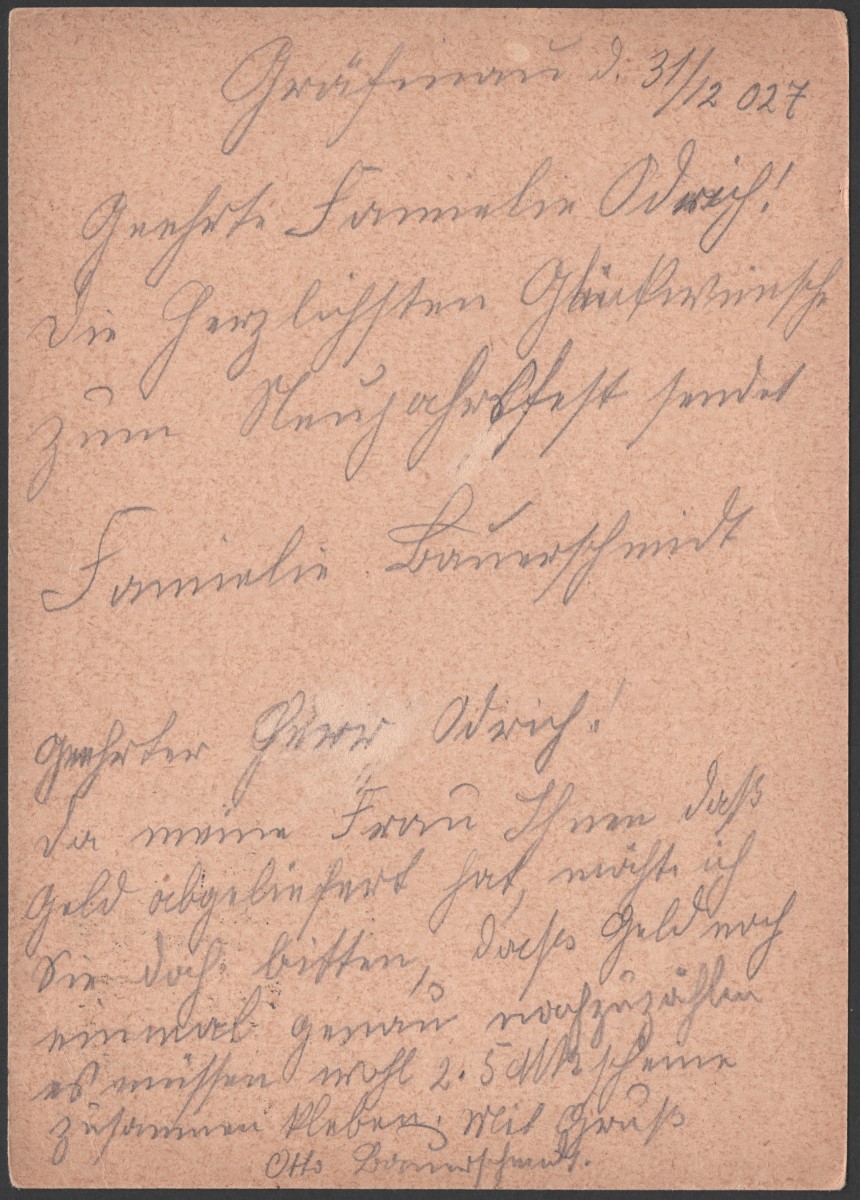 Gräfinau d. 31/12 027
Geehrte Famielie Odrich!
Die Herzlichsten Glückwünsche
zum Neujahrsfest sendet
Famielie Bauerschmidt
Geehrter Herr Odrich!
Da meine Frau Ihnen daß
Geld abgeliefert hat, möchte ich
Sie doch bitten, daß Geld noch
einmal genau nachzuzählen
es müssen wohl 2. 5 Mk scheine
zusammen kleben. Mit Gruß
Otto Bauerschmidt.